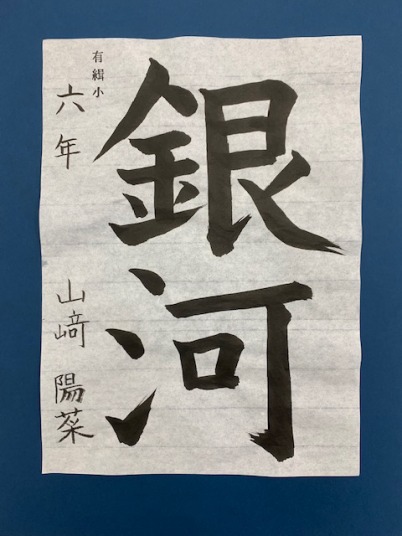 銀河
有緝小
六年 山﨑 陽菜